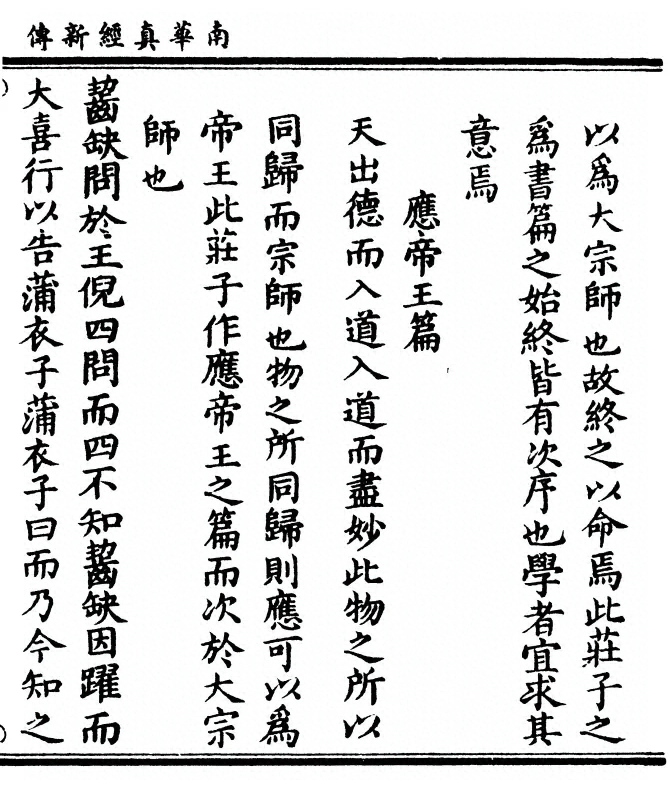 南華真經新傳
以爲大宗師也故終之以命焉此莊子之
爲書篇之始終皆有次序也學者宜求其
意焉
應帝王篇
天出德而入道入道而盡妙此物之所以
同歸而宗師也物之所同歸則應可以爲
帝王此莊子作應帝王之篇而次於大宗
師也
齧缺問於王倪四問而四不知齧缺因躍而
大喜行以告蒲衣子蒲衣子曰而乃今知之